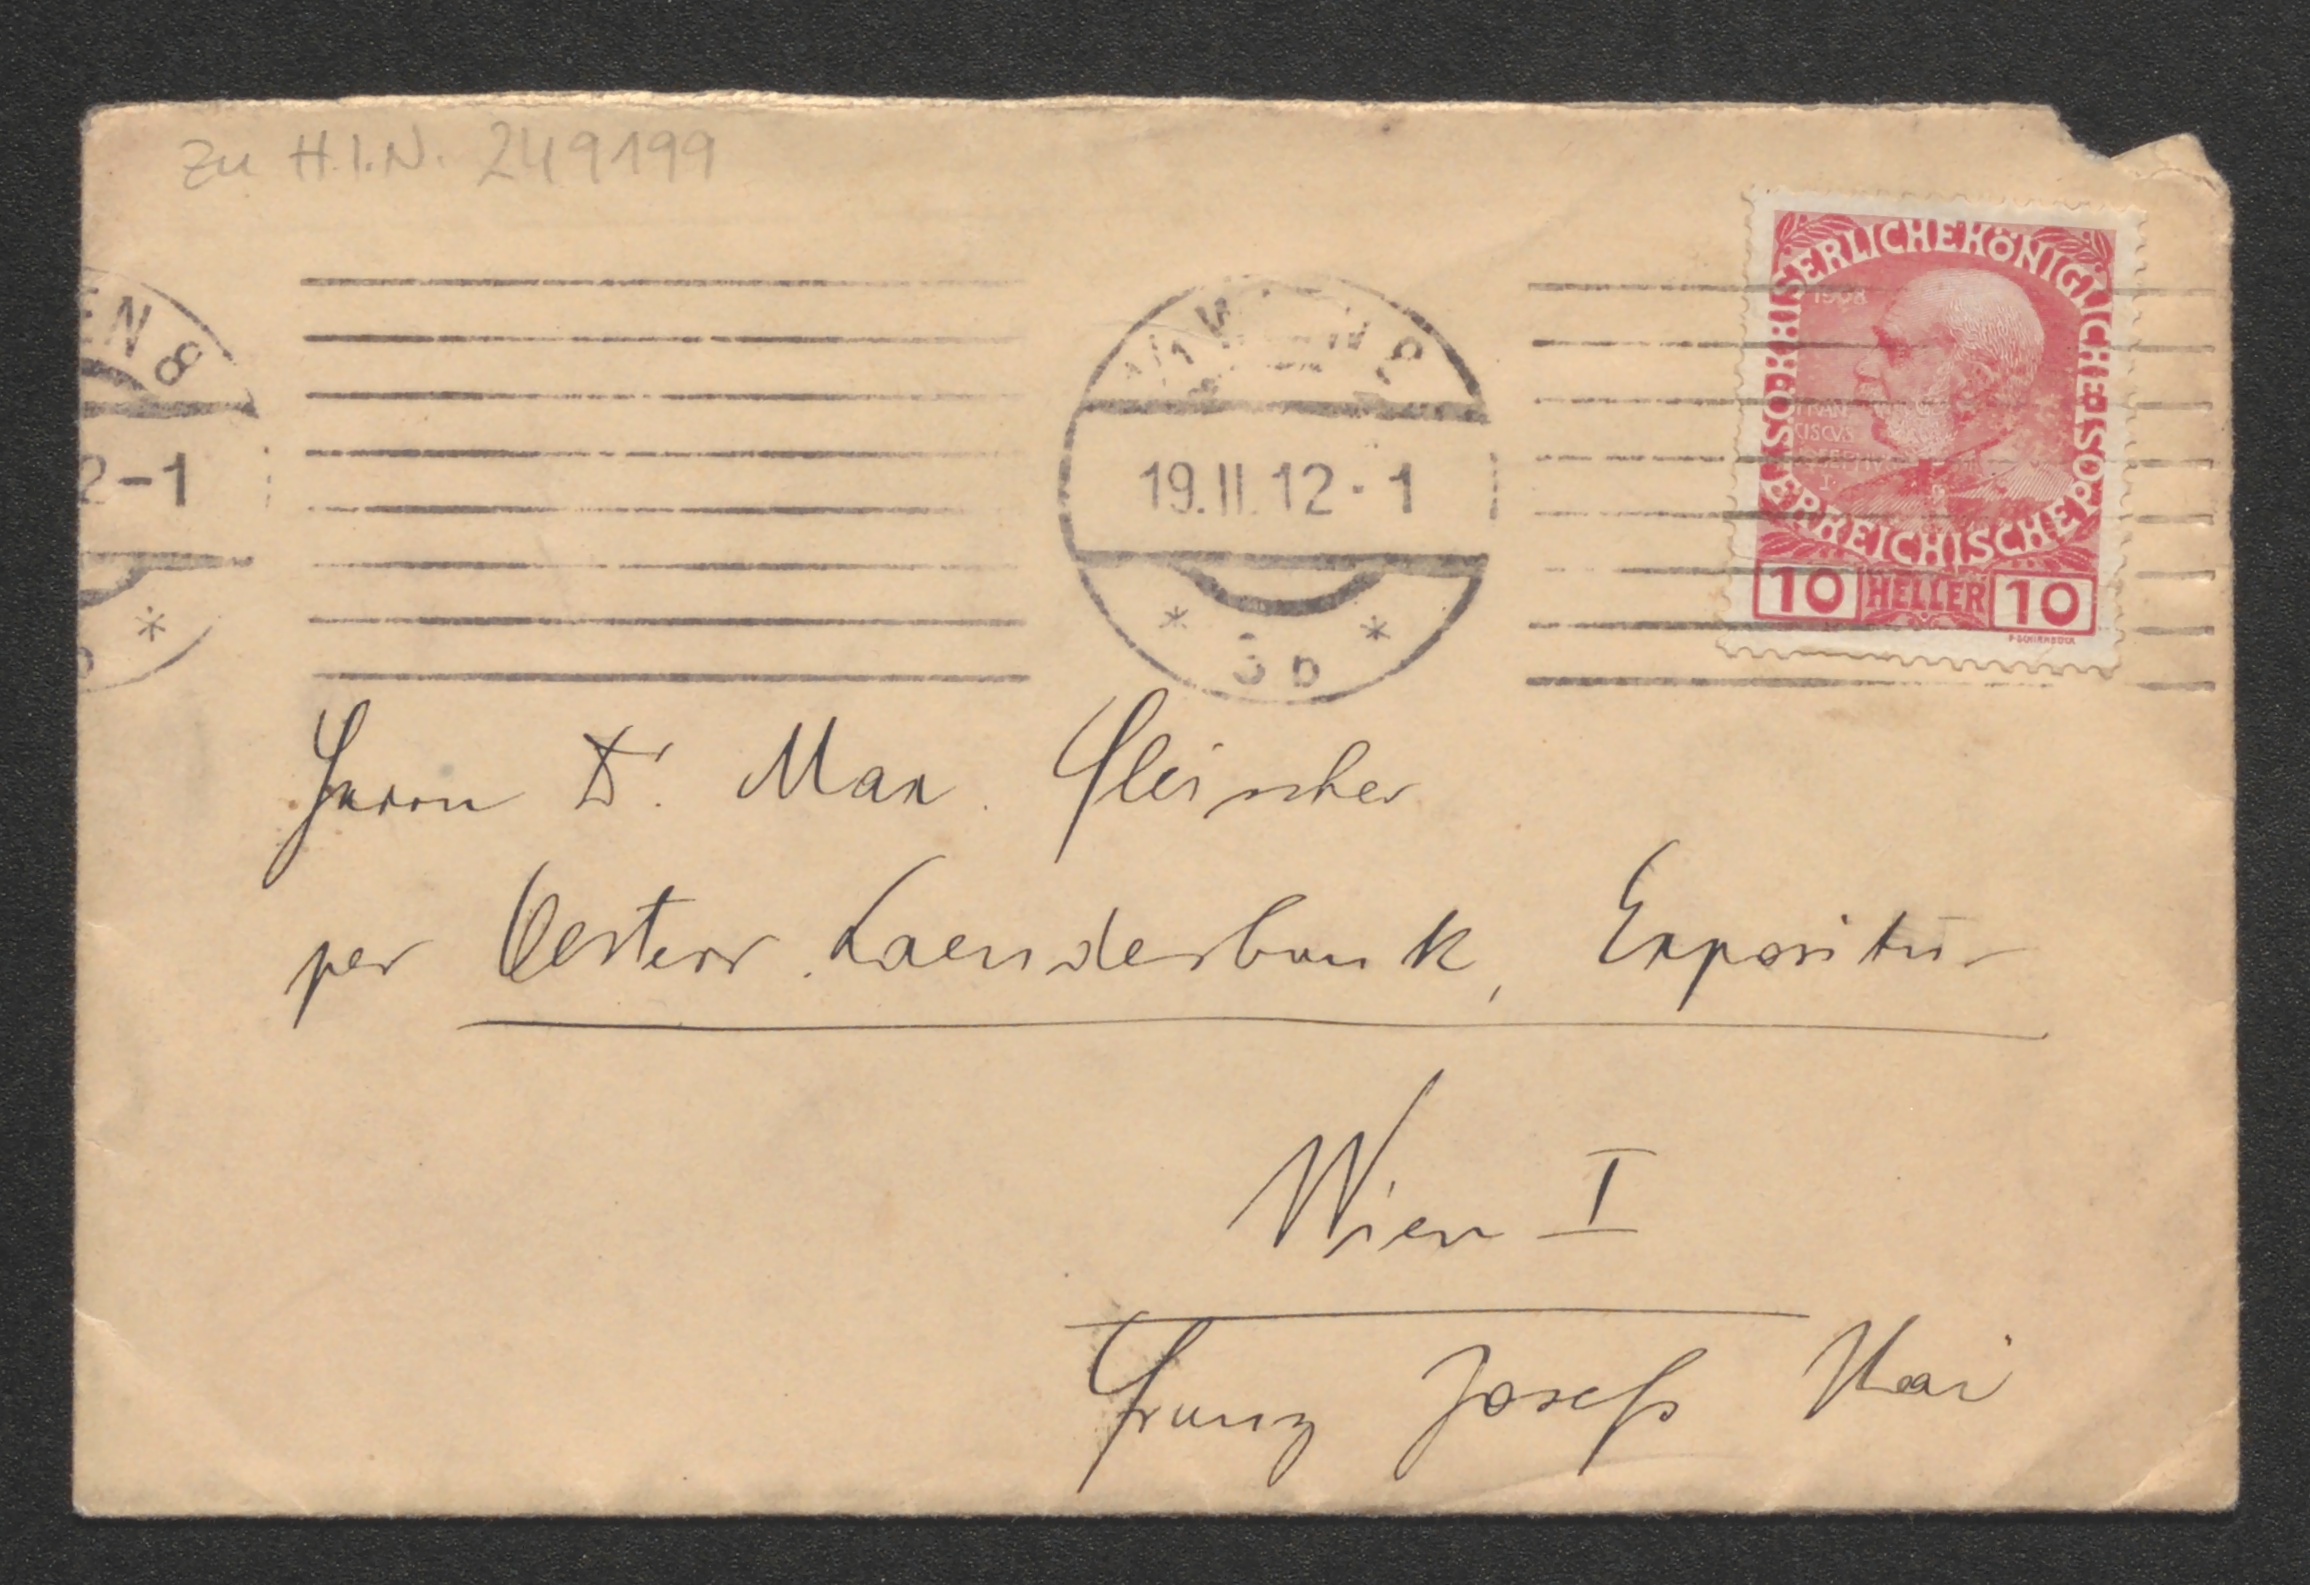 Zu H.I.N. 249199
EN 8
2-1
19.II.12-1
3b
KAISERLICHE KÖNIGLICHE ÖSTERREICHISCHE POST
1908
FRAN
CISCVS
I.
10 HELLER 10
Herrn Dr. Max Fleischer
per Oesterr. Laenderbank, Expositur
Wien I
Franz Josefs Kai